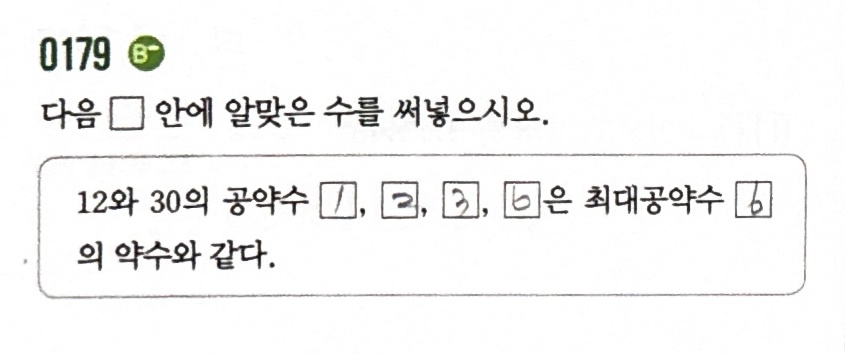 0179 B-
다음 □ 안에 알맞은 수를 써넣으시오.
12와 30의 공약수 1, 2, 3, 6은 최대공약수 6
의 약수와 같다.